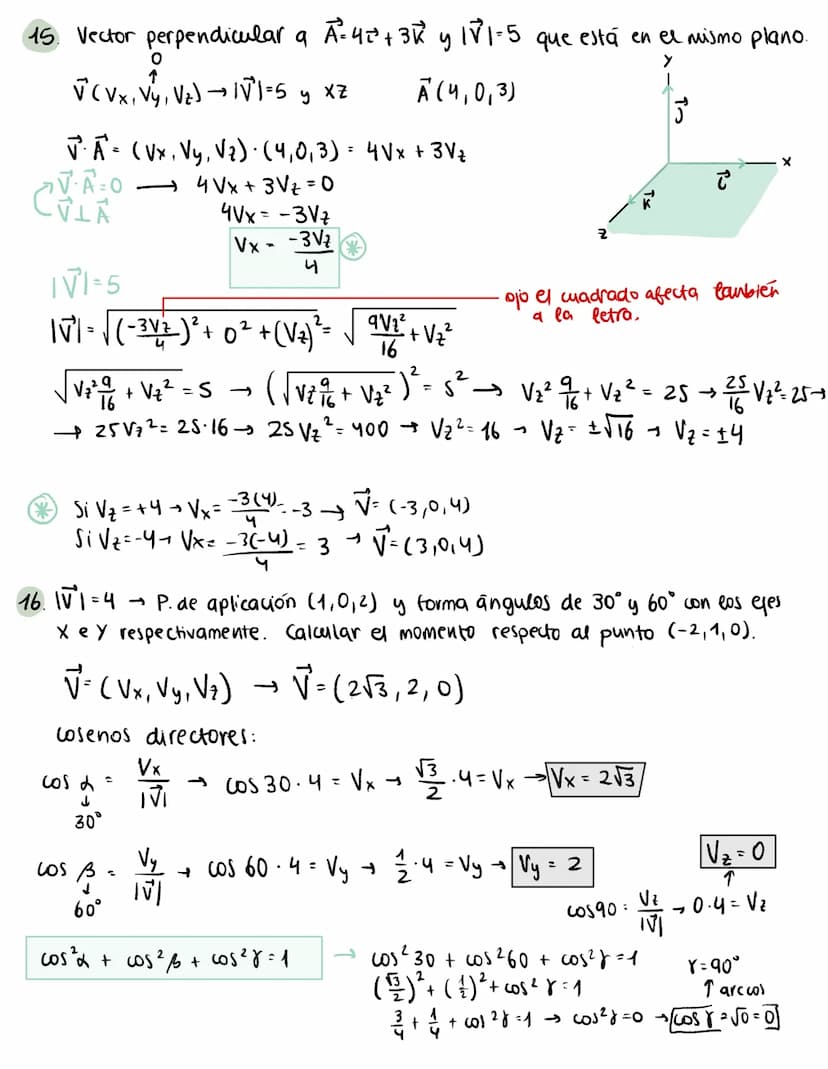 15. Vector perpendicular a A⃗=4i⃗+3k⃗ y |V⃗|=5 que está en el mismo plano.
0
↑
V⃗(Vx,Vy,Vz)→|V⃗|=5 y xz A⃗(4,0,3)
y
j⃗
x
i⃗
k⃗
z
V⃗·A⃗=(Vx,Vy,Vz)·(4,0,3)=4Vx+3Vz
V⃗·A⃗=0 → 4Vx+3Vz=0
V⃗⊥A⃗ 4Vx=-3Vz
Vx=-3Vz/4 *
|V⃗|=5
ojo el cuadrado afecta también
a la letra.
|V⃗|=√((-3Vz/4)²+0²+(Vz)²)=√(9Vz²/16+Vz²)
√(Vz²9/16+Vz²)=5 → (√(Vz²9/16+Vz²))²=5² → Vz²9/16+Vz²=25 → 25/16Vz²=25→
→ 25Vz²=25·16→ 25Vz²=400 → Vz²=16 → Vz=±√16 → Vz=±4
* Si Vz=+4→Vx=-3(4)/4=-3→V⃗=(-3,0,4)
Si Vz=-4→Vx=-3(-4)/4=3→V⃗=(3,0,4)
16. |V⃗|=4 → P. de aplicación (1,0,2) y forma ángulos de 30° y 60° con los ejes
X e Y respectivamente. Calcular el momento respecto al punto (-2,1,0).
V⃗=(Vx,Vy,Vz) → V⃗=(2√3,2,0)
cosenos directores:
cos α=Vx/|V⃗| → cos30·4=Vx → √3/2·4=Vx → Vx=2√3
↓
30°
cos β=Vy/|V⃗| → cos60·4=Vy → 1/2·4=Vy → Vy=2
↓
60°
Vz=0
↑
cos90=Vz/|V⃗| → 0·4=Vz
cos²α+cos²β+cos²γ=1 → cos²30+cos²60+cos²γ=1
(√3/2)²+(1/2)²+cos²γ=1
3/4+1/4+cos²γ=1 → cos²γ=0 → cosγ=√0=0
γ=90°
↑arccos